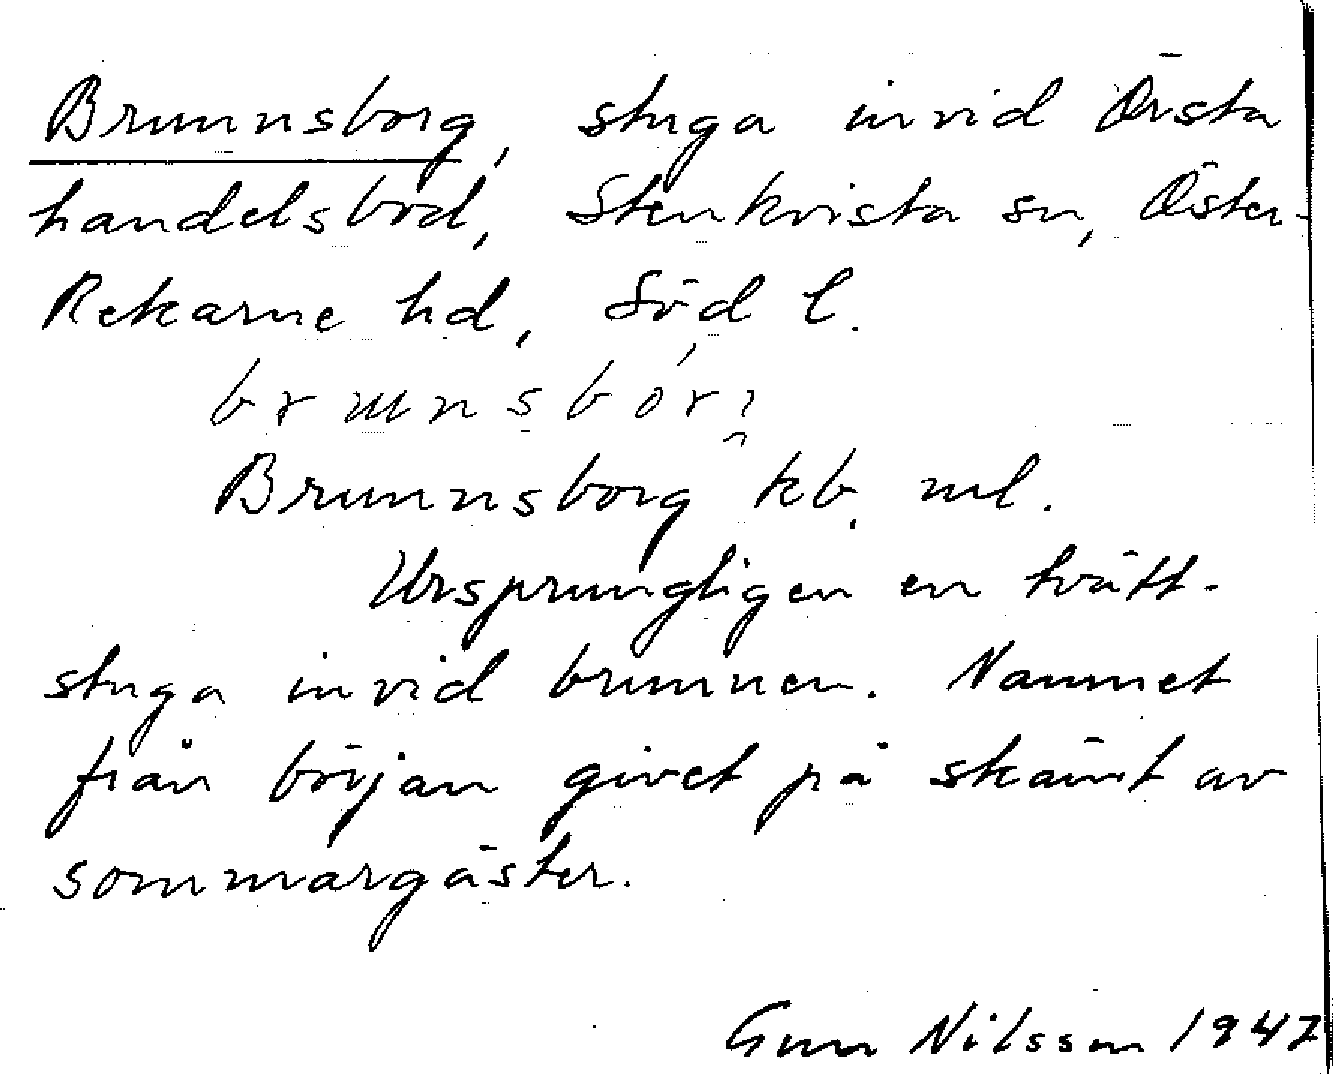 Brunnsborg, stuga invid Örsta
handelsbod, Stenkvista sn, Öster-
Rekarne hd, Söd l.
Brunnsborg kb. ml.
Ursprungligen en tvätt-
stuga invid brunnen. Namnet
från början givet på skämt av
sommargäster.
Gun Nilsson 1947